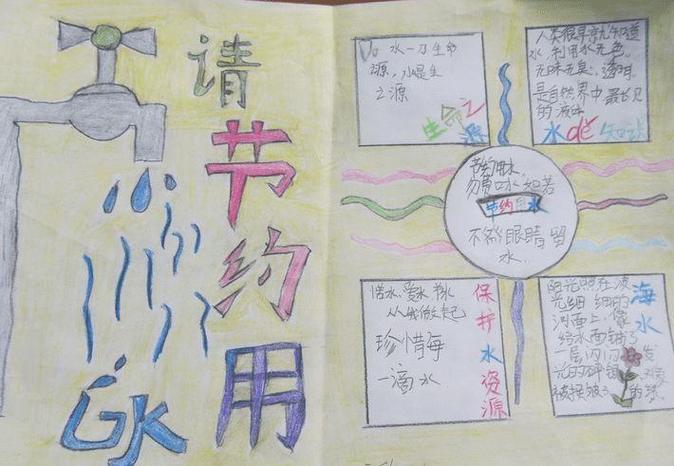 请
节
约
用
水
水一万生命
源，水是生
之源
生命之源
人类很早就知道
水 利用水无色
无味无臭，透明
是自然界中最长见
的液体
水de知识
节约用水
勿费口水 如若
节约用水
不然 眼睛留
水.
惜水、爱水 节水
从我做起
珍惜每
一滴 水
保护水资源
阳光照在波
光细 细的
河面上，像
给水面铺了
一层闪闪发
光的碎银
海水